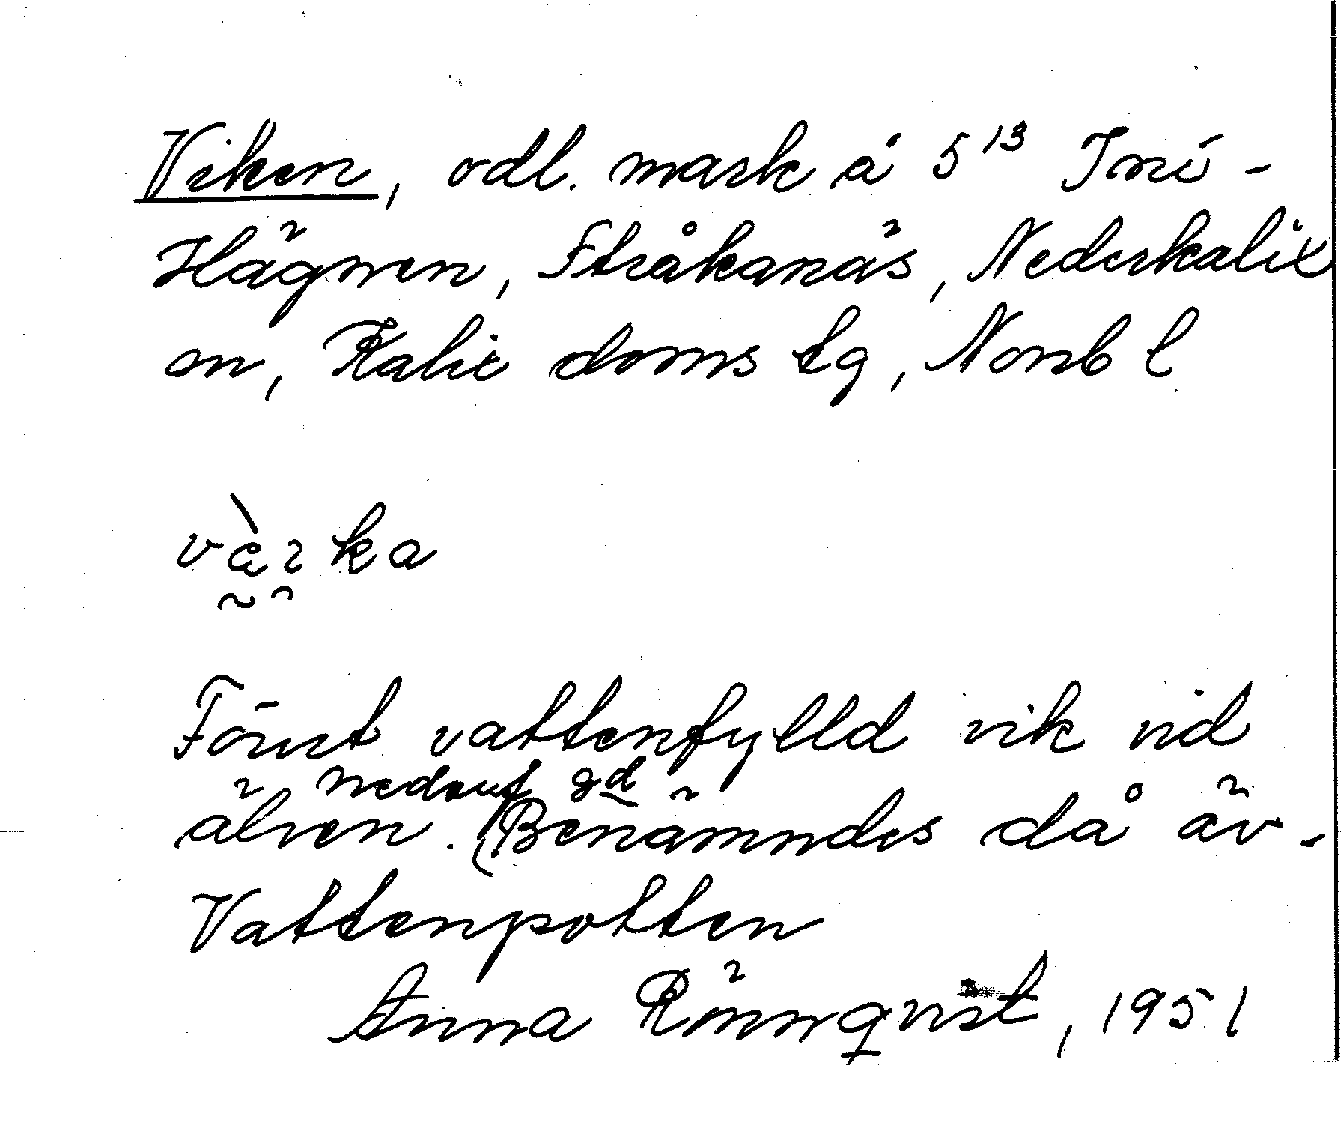 Viken, odl. mark å 5¹³ Inri-
Hägnen, Stråkanäs, Nederkalix
sn, Kalix doms tg, Norrb l
Först vattenfylld vik vid
nedanf gd
älven. (Benämndes då äv.
Vattenpotten
Anna Rönnqvist, 1951